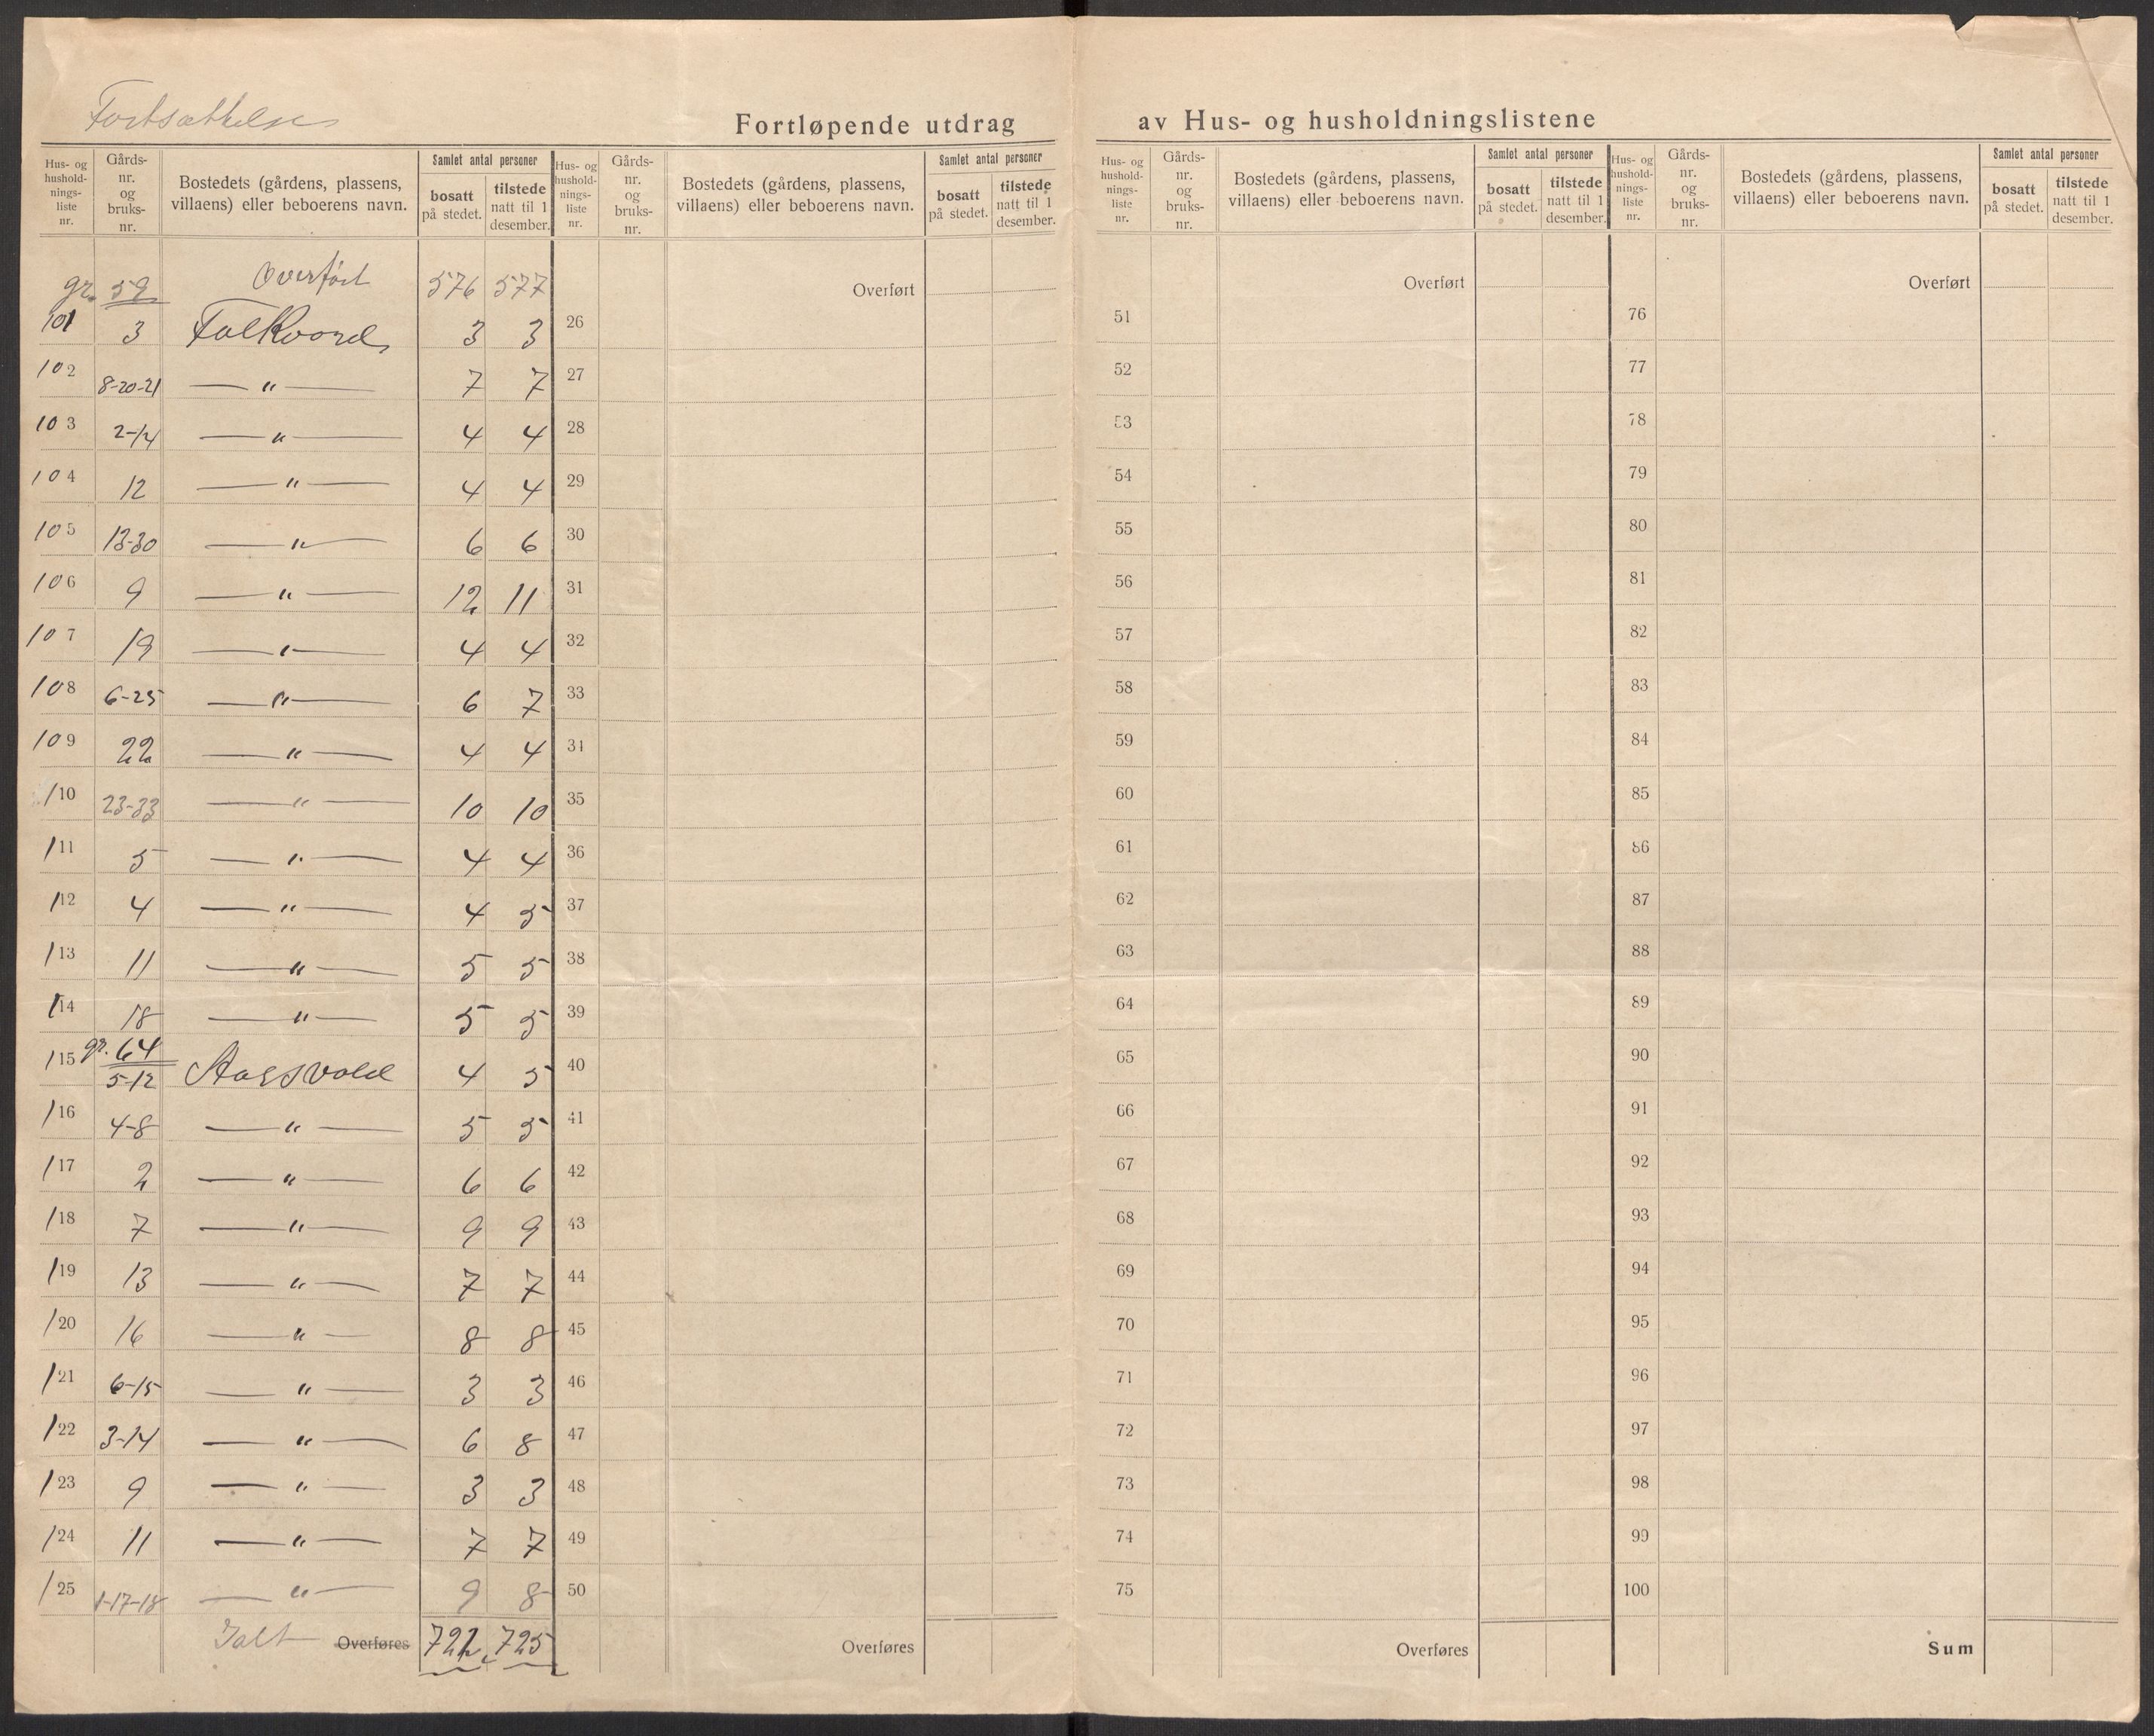 Fortsættelse
Fortløpende utdrag av Hus- og husholdningslistene
Hus- og hushold-nings-liste nr. Gårds-nr. og bruks-nr. Bostedets (gårdens, plassens, villaens) eller beboerens navn. Samlet antal personer bosatt på stedet. tilstede natt til 1 desember.
Hus- og hushold-nings-liste nr. Gårds-nr. og bruks-nr. Bostedets (gårdens, plassens, villaens) eller beboerens navn. Samlet antal personer bosatt på stedet. tilstede natt til 1 desember.
Hus- og hushold-nings-liste nr. Gårds-nr. og bruks-nr. Bostedets (gårdens, plassens, villaens) eller beboerens navn. Samlet antal personer bosatt på stedet. tilstede natt til 1 desember.
Hus- og hushold-nings-liste nr. Gårds-nr. og bruks-nr. Bostedets (gårdens, plassens, villaens) eller beboerens navn. Samlet antal personer bosatt på stedet. tilstede natt til 1 desember.
gr. 59 Overført 576 577
101 3 Falkvord 3 3
102 8-20-21 —"— 7 7
103 2-14 —"— 4 4
104 12 —"— 4 4
105 13-30 —"— 6 6
106 9 —"— 12 11
107 19 —"— 4 4
108 6-25 —"— 6 7
109 22 —"— 4 4
110 23-33 —"— 10 10
111 5 —"— 4 4
112 4 —"— 4 5
113 11 —"— 5 5
114 18 —"— 5 5
gr. 64
115 5-12 Aassvold 4 5
116 4-8 —"— 5 5
117 2 —"— 6 6
118 7 —"— 9 9
119 13 —"— 7 7
120 16 —"— 8 8
121 6-15 —"— 3 3
122 3-14 —"— 6 8
123 9 —"— 3 3
124 11 —"— 7 7
125 1-17-18 —"— 9 8
Ialt Overføres 721 725
Overført
26
27
28
29
30
31
32
33
34
35
36
37
38
39
40
41
42
43
44
45
46
47
48
49
50
Overføres
Overført
51
52
53
54
55
56
57
58
59
60
61
62
63
64
65
66
67
68
69
70
71
72
73
74
75
Overføres
Overført
76
77
78
79
80
81
82
83
84
85
86
87
88
89
90
91
92
93
94
95
96
97
98
99
100
Sum